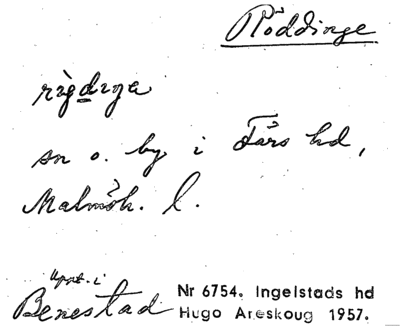 Röddinge
rı̀gdıŋa
sn o. by i Färs hd,
Malmöh. l.
Uppt. i
Benestad
Nr 6754. Ingelstads hd
Hugo Areskoug 1957.